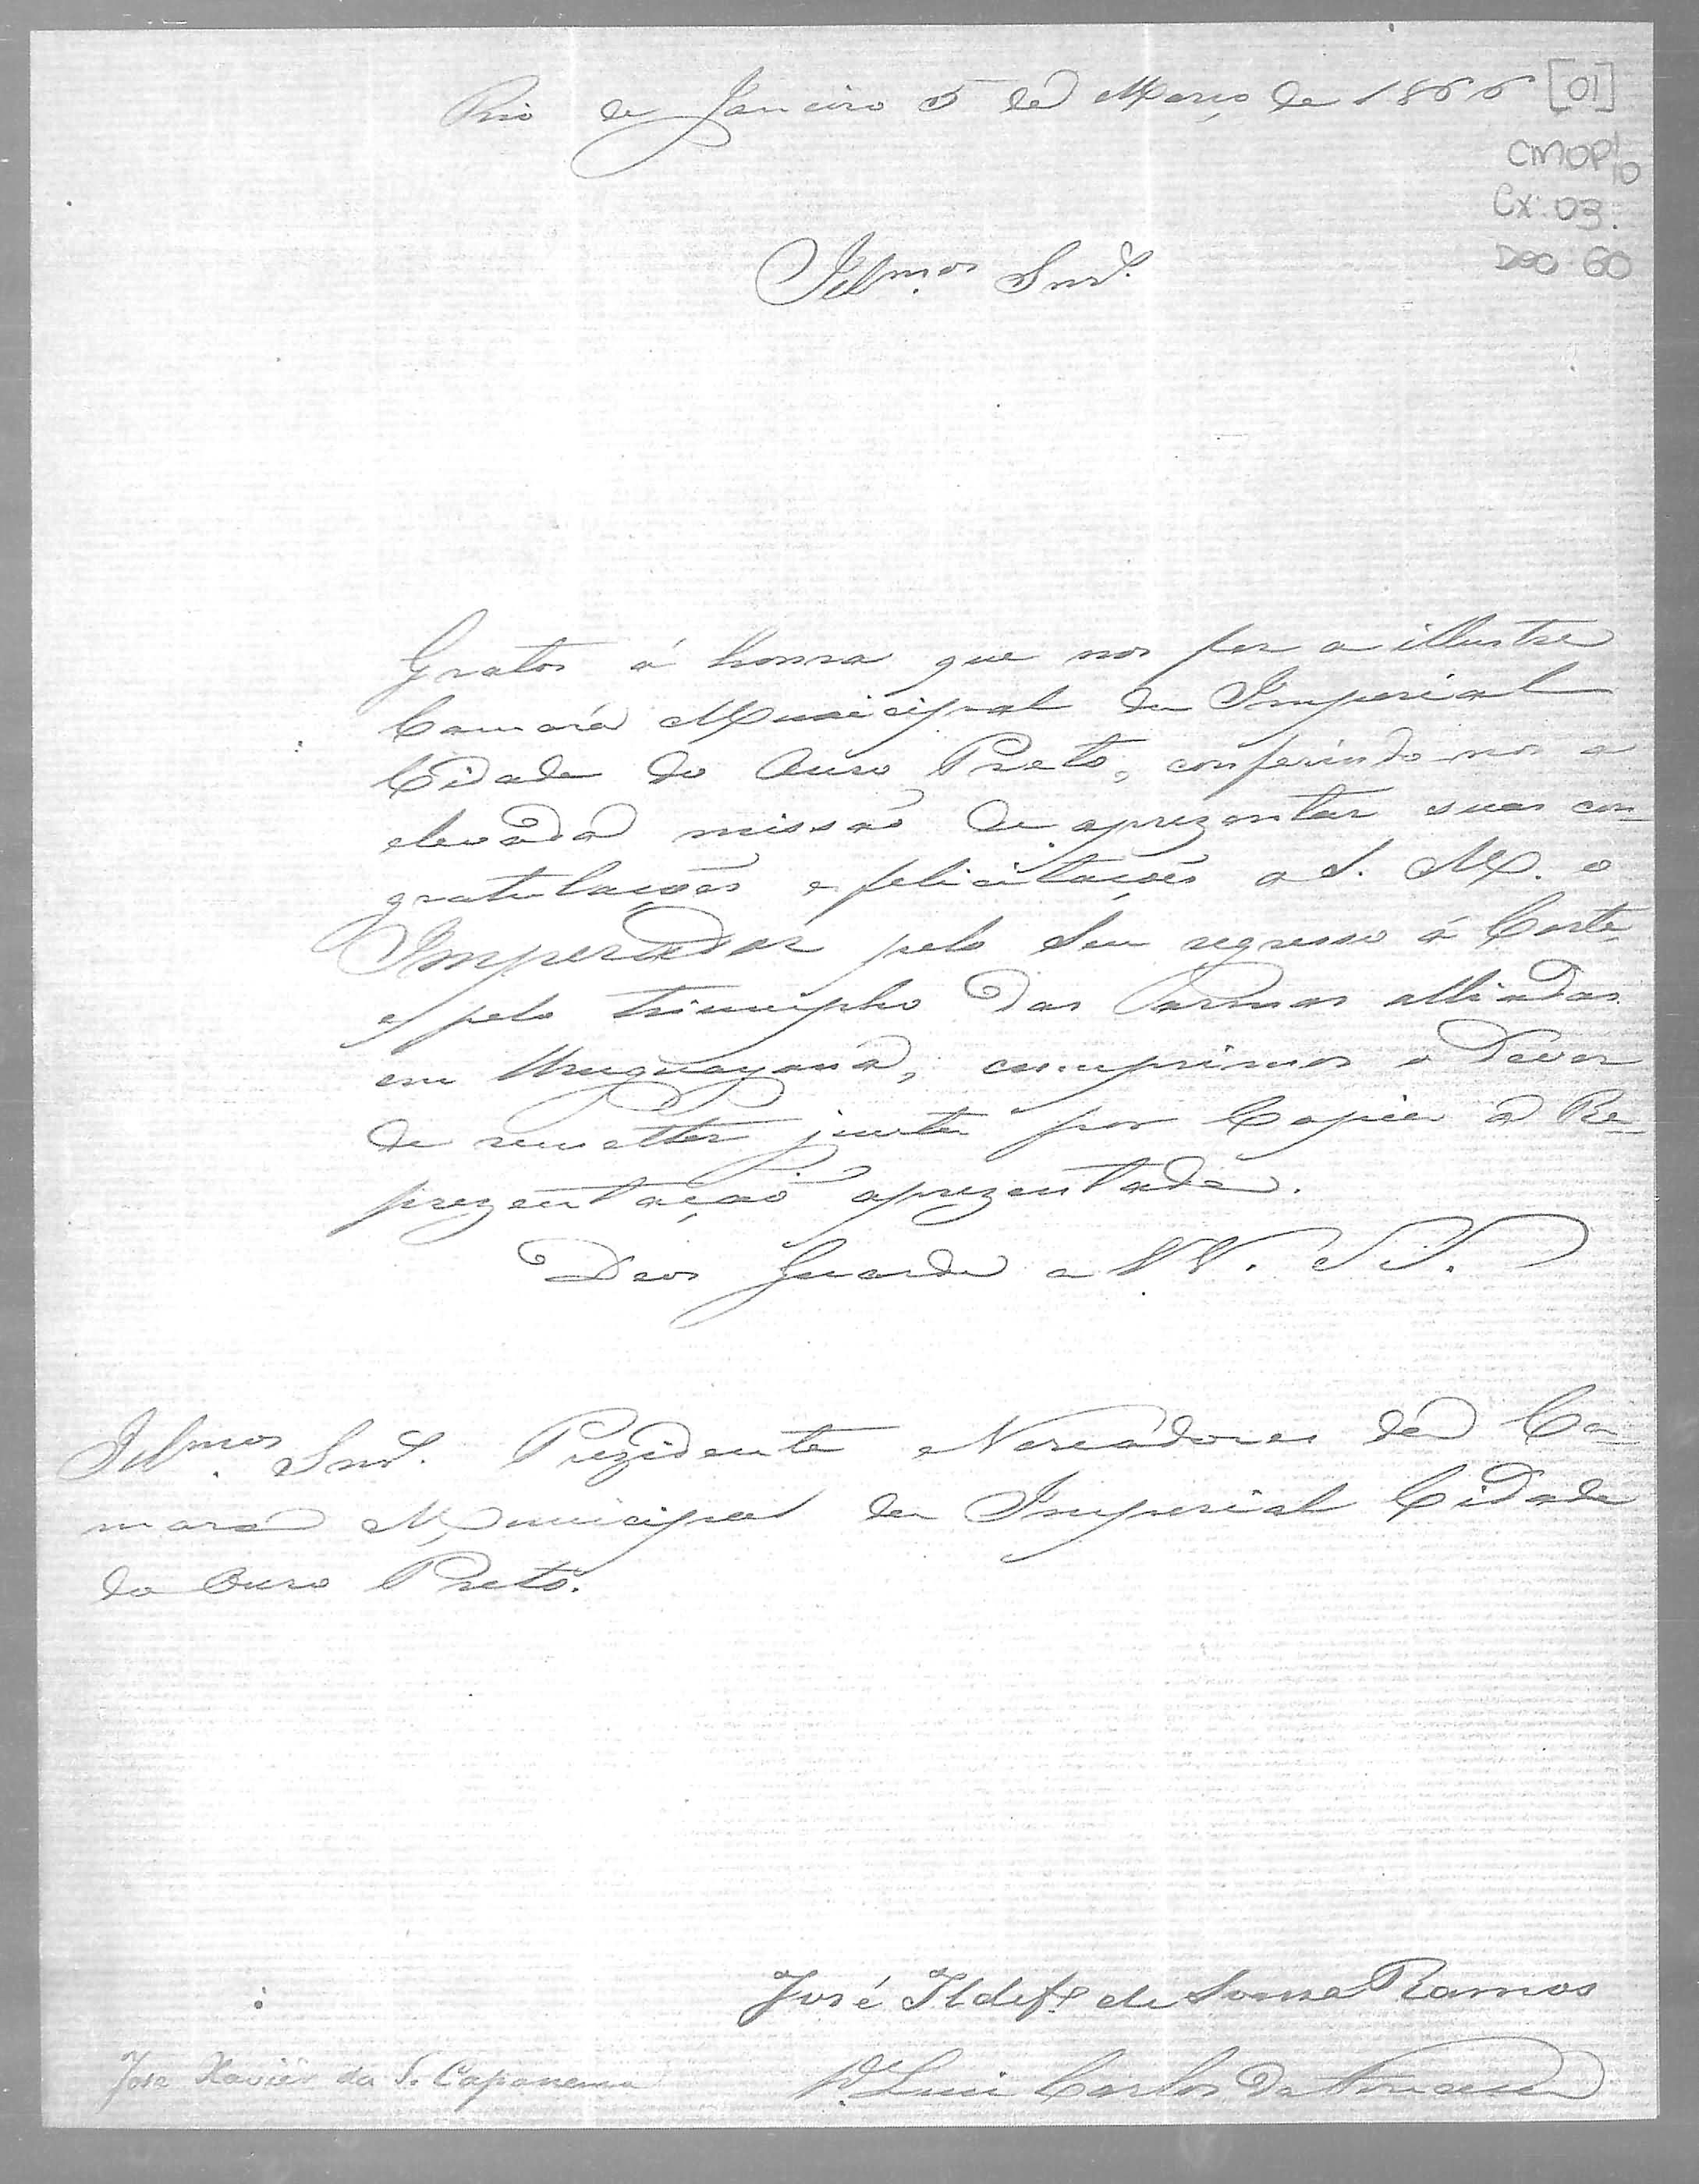 Rio de Janeiro 5 de Março de 1866 [01]
CMOP
Cx: 03.
Doc 60
Illmos Snrs.
Gratos á honra que nos fez a illustre
Camara Municipal da Imperial
Cidade do Ouro Preto, conferindo-nos a
elevada missão de aprezentar suas con-
gratulações e felicitações a S. M. o
Imperador pelo Seu regresso á Corte,
e pelo triumpho das Armas alliadas
em Uruguayana, cumprimos o dever
de remetter junta por Copia a Re-
prezentação aprezentada.
Deos Guarde a VV. SS.
Illmos Snrs. Prezidente e Vereadores da Ca-
mara Municipal da Imperial Cidade
do Ouro Preto.
José Ildefo. de Sousa Ramos
José Xavier da S. Capanema
Dr. Luis Carlos da Fonseca